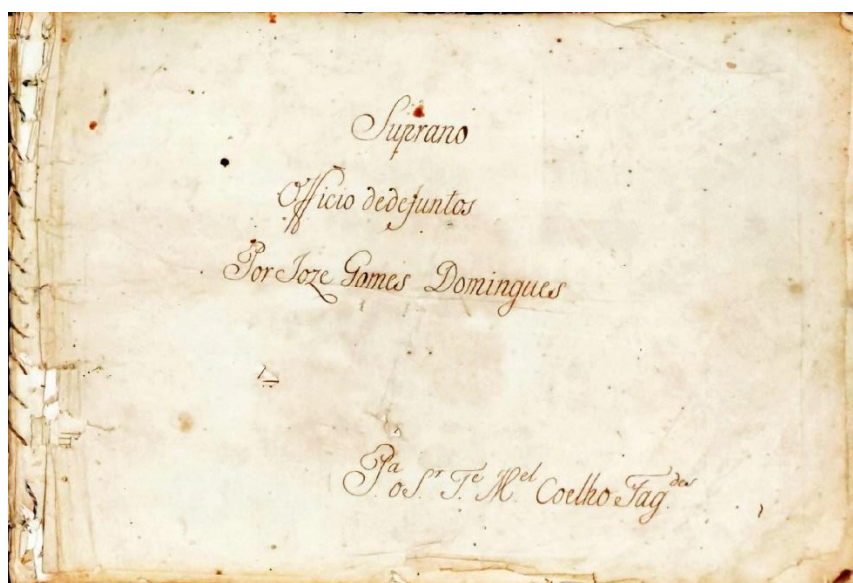 Suprano
Officio dedefuntos
Por Joze Gomes Domingues
P.ª o S.r T.e M.el Coelho Fag.des